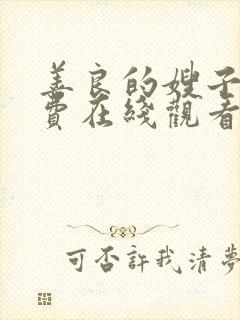 善良的嫂子
費在綫觀看
可否許我清夢